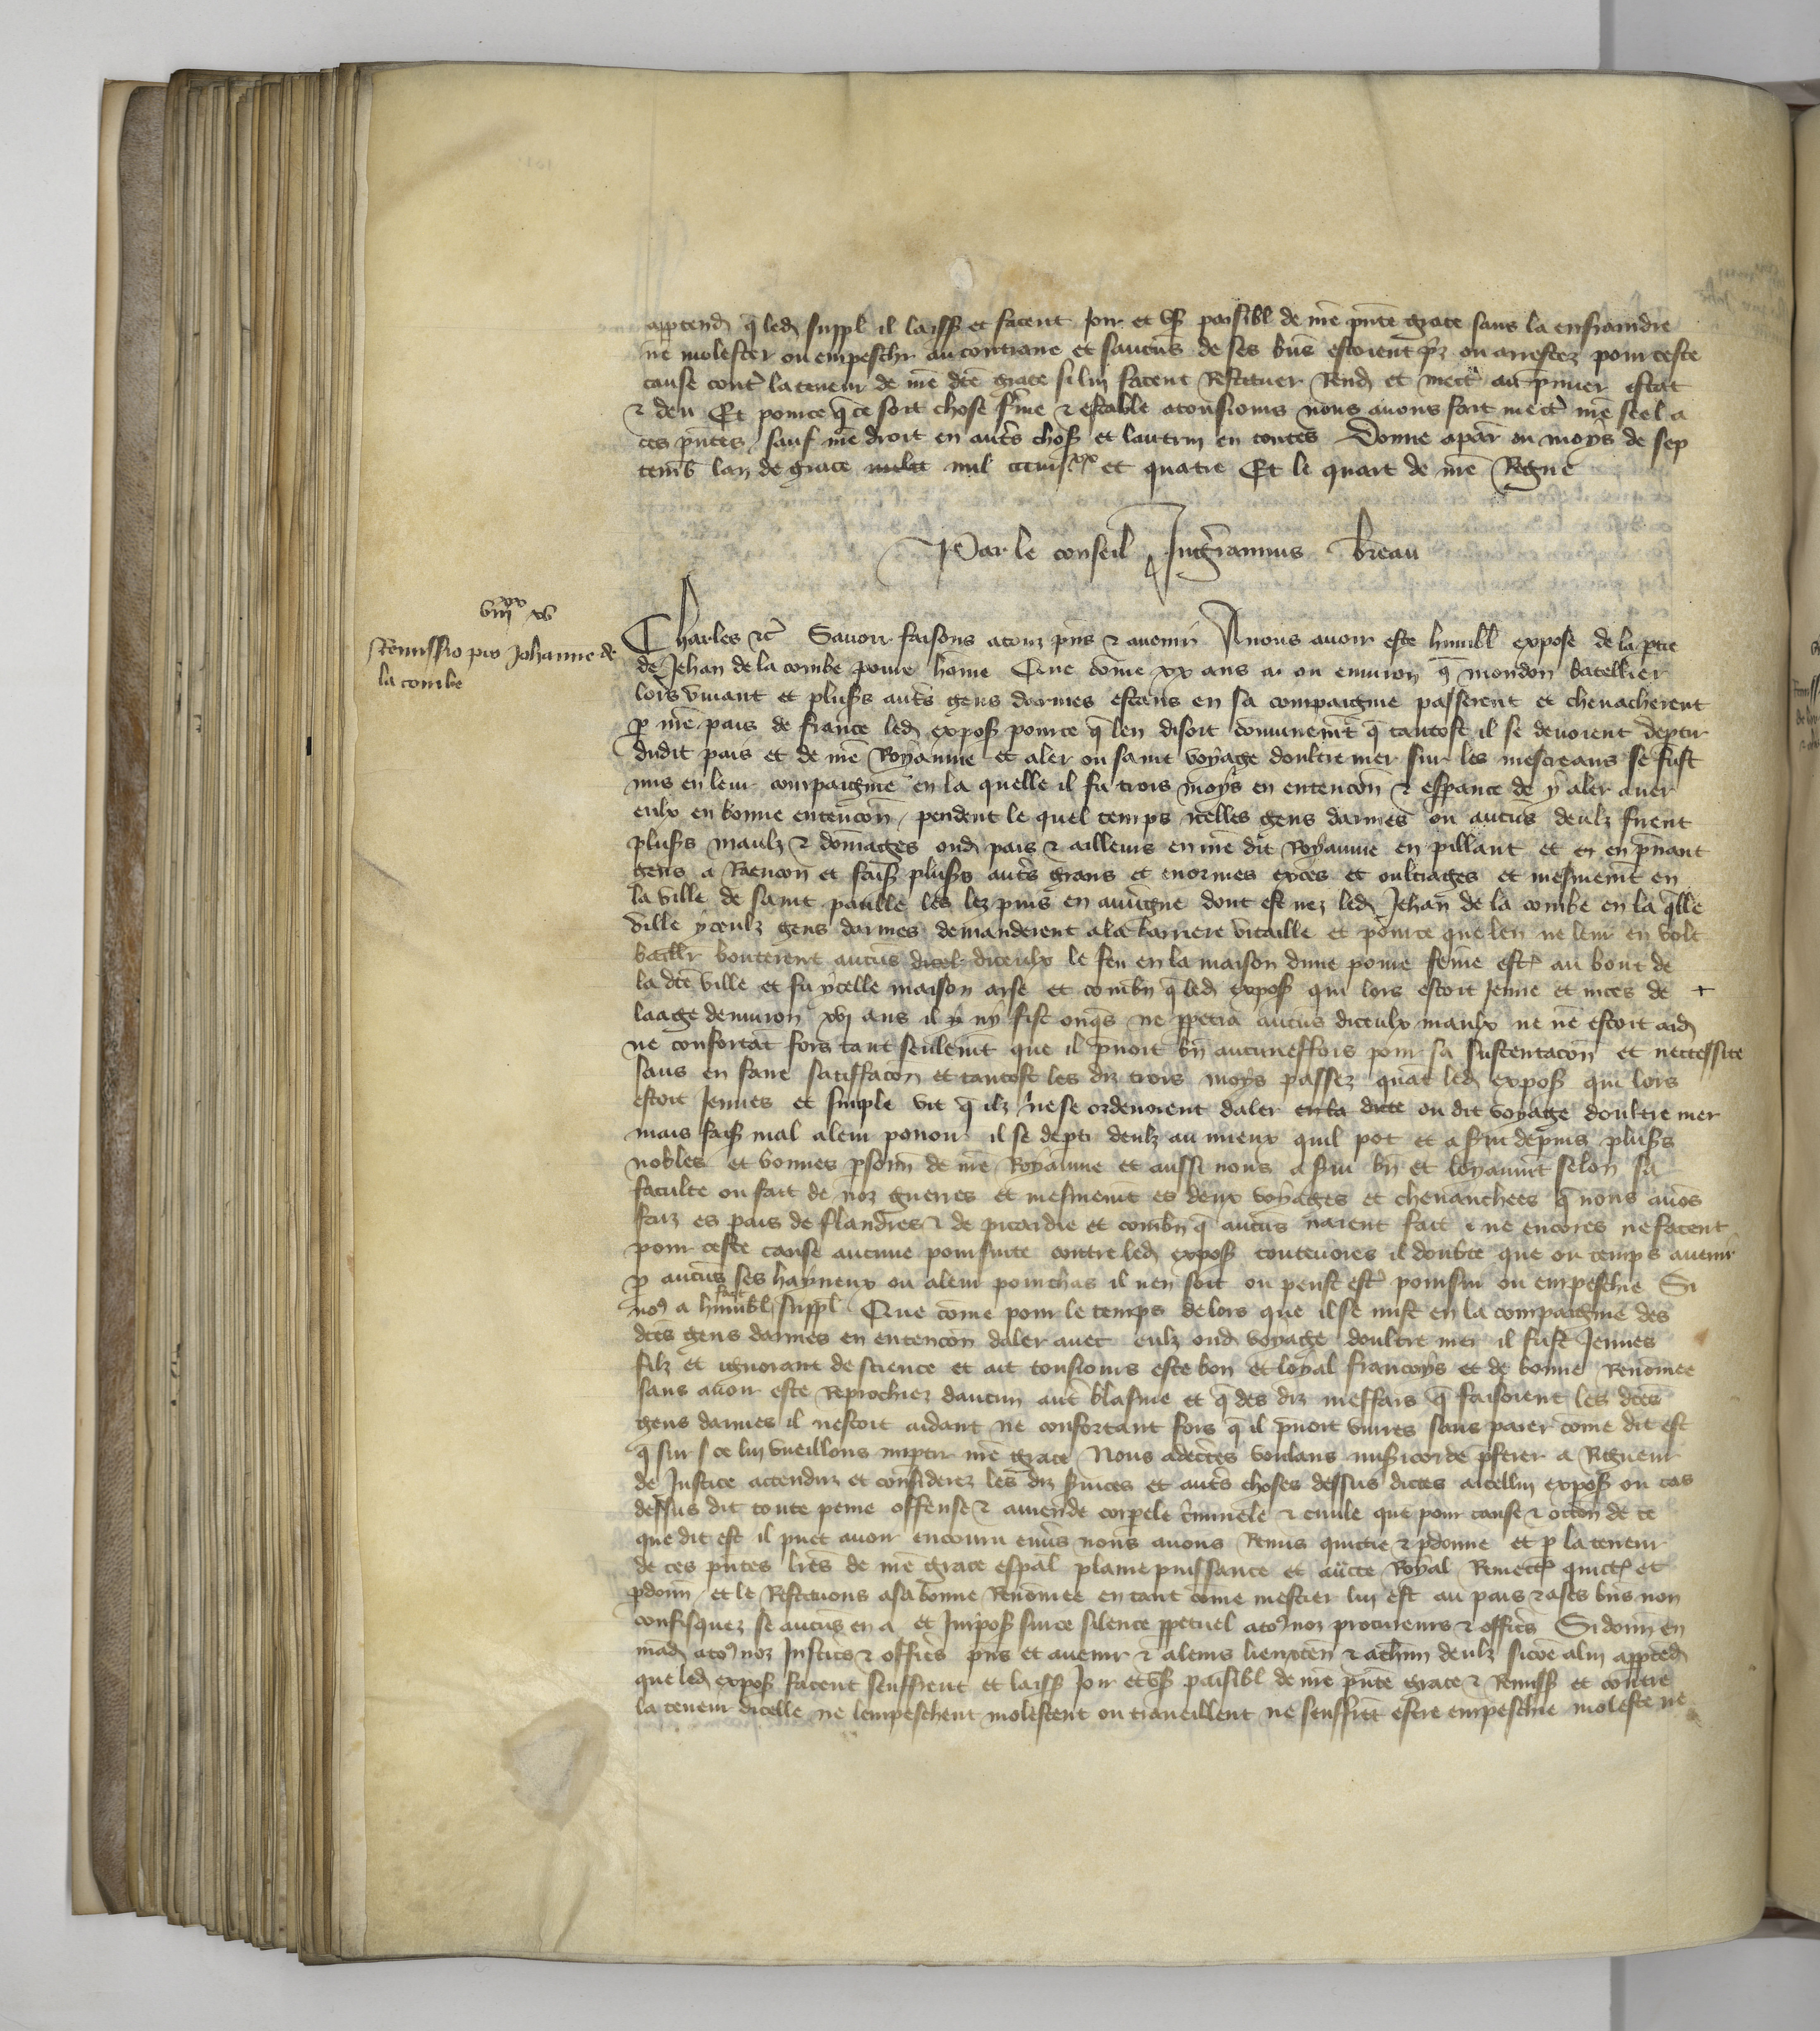 apptend q̄ led suppl il laiss et facent Joir et us paisibl de nre p̄nte grace sans la enfraindre
ne molester ou empeschr au contraire et saucūs de ses biēs estoient p̄z ou arrestez pour ceste
cause cont̄ la teneur de nr̄e dcē grace si lui facent Restituer Rendr et mectr au p̄mier estat
& deu Et pour ce q̄ ce soit chose ferme & estable atousjours nous avons fait mectr nr̄e seel a
ces p̄ntes sauf nr̄e droit en aut̄s chos et lautruy en toutes Donne a paris ou moys de sep
temb lan de grace mil ccciiii xx et quatre Et le quart de nr̄e Regne
Par le conseil Ing̃ramus Breau
viii xx xv
Remissio pro Johanne de
la combe
Charles &c̄ Savoir faisons a touz p̄ns & avenir A nous avoir este humbl expose de la p̄tie
de Jehan de la combe povre hōme Que cōme xx ans a ou environ q̄ mondon batellier
lors vivant et plus̄s aut̄s gens darmes estans en sa compaignie passerent et chevacherent
p̱ nr̄e pais de france led expos pour ce q̄ len disoit cōmunemēt q̄ tantost il se devoient dep̄tir
dudit pais et de nr̄e Royaume et aler ou saint voyage doultre mer sur les mescreans se fust
mis en leur compaignie en la quelle il fu trois moys en entencōn & esp̄ance de y aler avec
eulx en bonne entencōn pendent le quel temps icelles gens darmes ou aucūs deulz firent
plus̄s maulz & dōmages oud pais & ailleurs en nr̄e dit Royaume en pillant et en p̄nant
gens a Raencon et fais plus̄s aut̄s grans et enormes exces et oultrages et mesmemt en
la ville de saint paulle les lez puis en auv̄igne dont est nez led Jehan de la combe en la q̄lle
ville yceulz gens darmes demanderent a la barriere vitaille et pour ce que len ne leur en volt
baillr bouterent aucūs diceulx le feu en la maison dune povre fēme est au bout de
la dcē ville et fu ycelle maison arse et combn̄ q̄ led expos qui lors estoit Jeune et nices de
laage denviron xvi ans il ny fist onq̄s ne p̱petra aucūs diceulx maulx ne nē estoit aid
ne confortāt fors tant seulemt que il p̄noit bn̄ aucuneffois pour sa sustentacōn et neccessite
sans en faire satiffacōn et tantost les diz trois moys passez quāt led expos qui lors
estoit Jeunes et simple vit q̄ ilz ne se ordenoient daler en la dicte ou dit voyage doultre mer
mais fais mal a leur povoir il se dep̄ti deulz au mieux quil pot et a s̄vi depuis plus̄s
nobles et bonnes p̱sonn de nr̄e Royaume et aussi nous a s̄vi bn̄ et loyaumt selon sa
faculte ou fait de noz guerres et mesmemt es deux voyages et chevauchees q̄ nous avōs
faiz es pais de flandres & de picardie et combn̄ q̄ aucūs naient fait ne encores ne facent
pour ceste cause aucune poursuite contre led expos toutevoies il doubte que ou temps avenir
p̱ aucūs ses hayneux ou a leur pourchas il nen soit ou peust estr poursui ou empeschie Si
noꝰ a fait humbl suppl Que cōme pour le temps de lors que il se mist en la compaignie des
dcēs gens darmes en entencōn daler avec eulz oud voyage doultre mer il fust Jeunes
filz et ignorant de science et ait tousjours este bon et loyal francoys et de bonne Renōmee
sans avoir este Reprochiez daucun aut̄ blasme et q̄ des diz meffais q̄ faisoient les dcēs
gens darmes il nestoit aidant ne confortant fors q̄ il p̄noit vivres sans paier cōme dit est
q̄ sur ce lui vueillons imp̄tir nr̄e grace Nous adecertes voulans misericorde p̄ferer a Rigueur
de Justice attenduz et considerez les diz s̄vices et aut̄s choses dessus dictes a icellui expos ou cas
dessus dit toute peine offense & amende corporele c̄iminele & civile que pour cause & occōn de ce
que dit est il puet avoir encouru env̄s nous avons Remis quictie & p̱donne et p̱ la teneur
de ces p̄ntes lr̄es de nr̄e grace esp̄al plaine puissance et aucte Royal Remect quict et
p̱donn et le Restituons a sa bonne Renōmee en tant cōme mestier lui est au pais & a ses bn̄s non
confisquez se aucūs en a et Impos sur ce silence p̱petuel a toꝰ noz procureurs & offic̄s Si donn en
mād a toꝰ noz Justic̄s & offic̄s p̄ns et avenir & a leurs lieuxten & a chūn deulz si cōe a lui appted
que led expos facent seuffrent et laiss Joir et us paisibl de nr̄e p̄nte grace & Remiss et contre
la teneur dicelle ne lempeschent molestent ou traveillent ne seuffrēt estre empeschie moleste ne